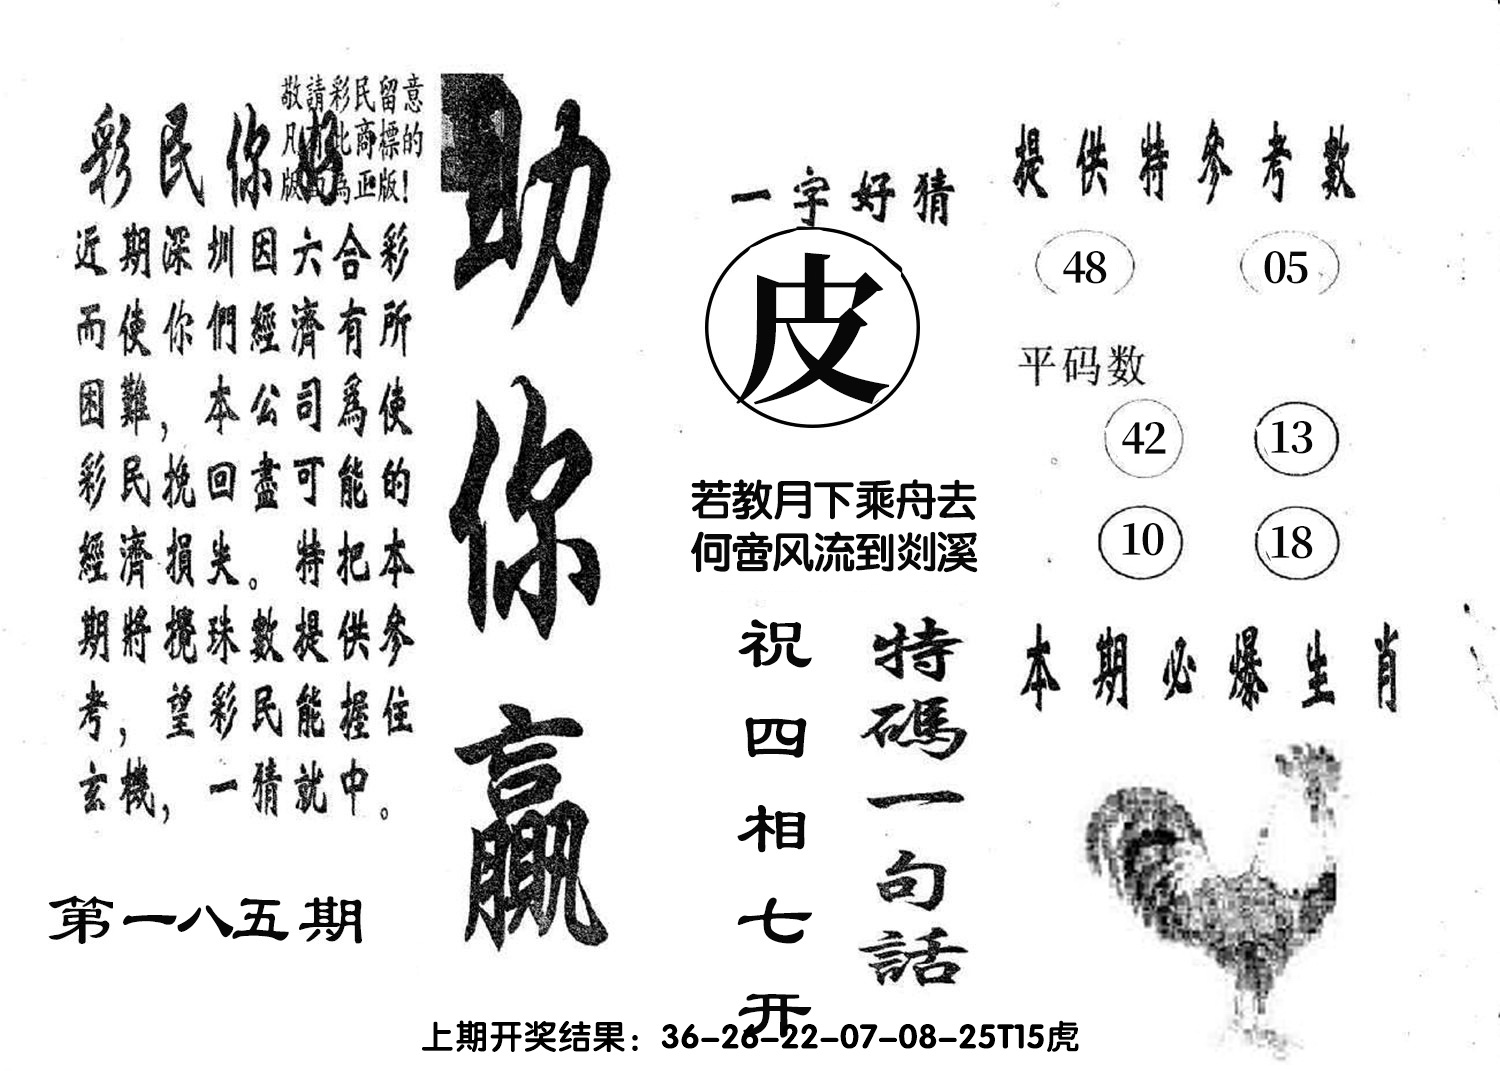 敬請彩民留意
凡有此商標的
版面為正版!
彩民你好
近期深圳因六合彩
而使你們經濟有所
困難，本公司爲使
彩民挽回盡可能的
經濟損失。特把本
期將攪珠數提供參
考，望彩民能握住
玄機，一猜就中。
第一八五期
助你贏
一字好猜
皮
若教月下乘舟去
何啻风流到剡溪
特碼一句話
祝四相七开
提供特參考數
48 05
平码数
42 13
10 18
本期必爆生肖
上期开奖结果：36-26-22-07-08-25T15虎